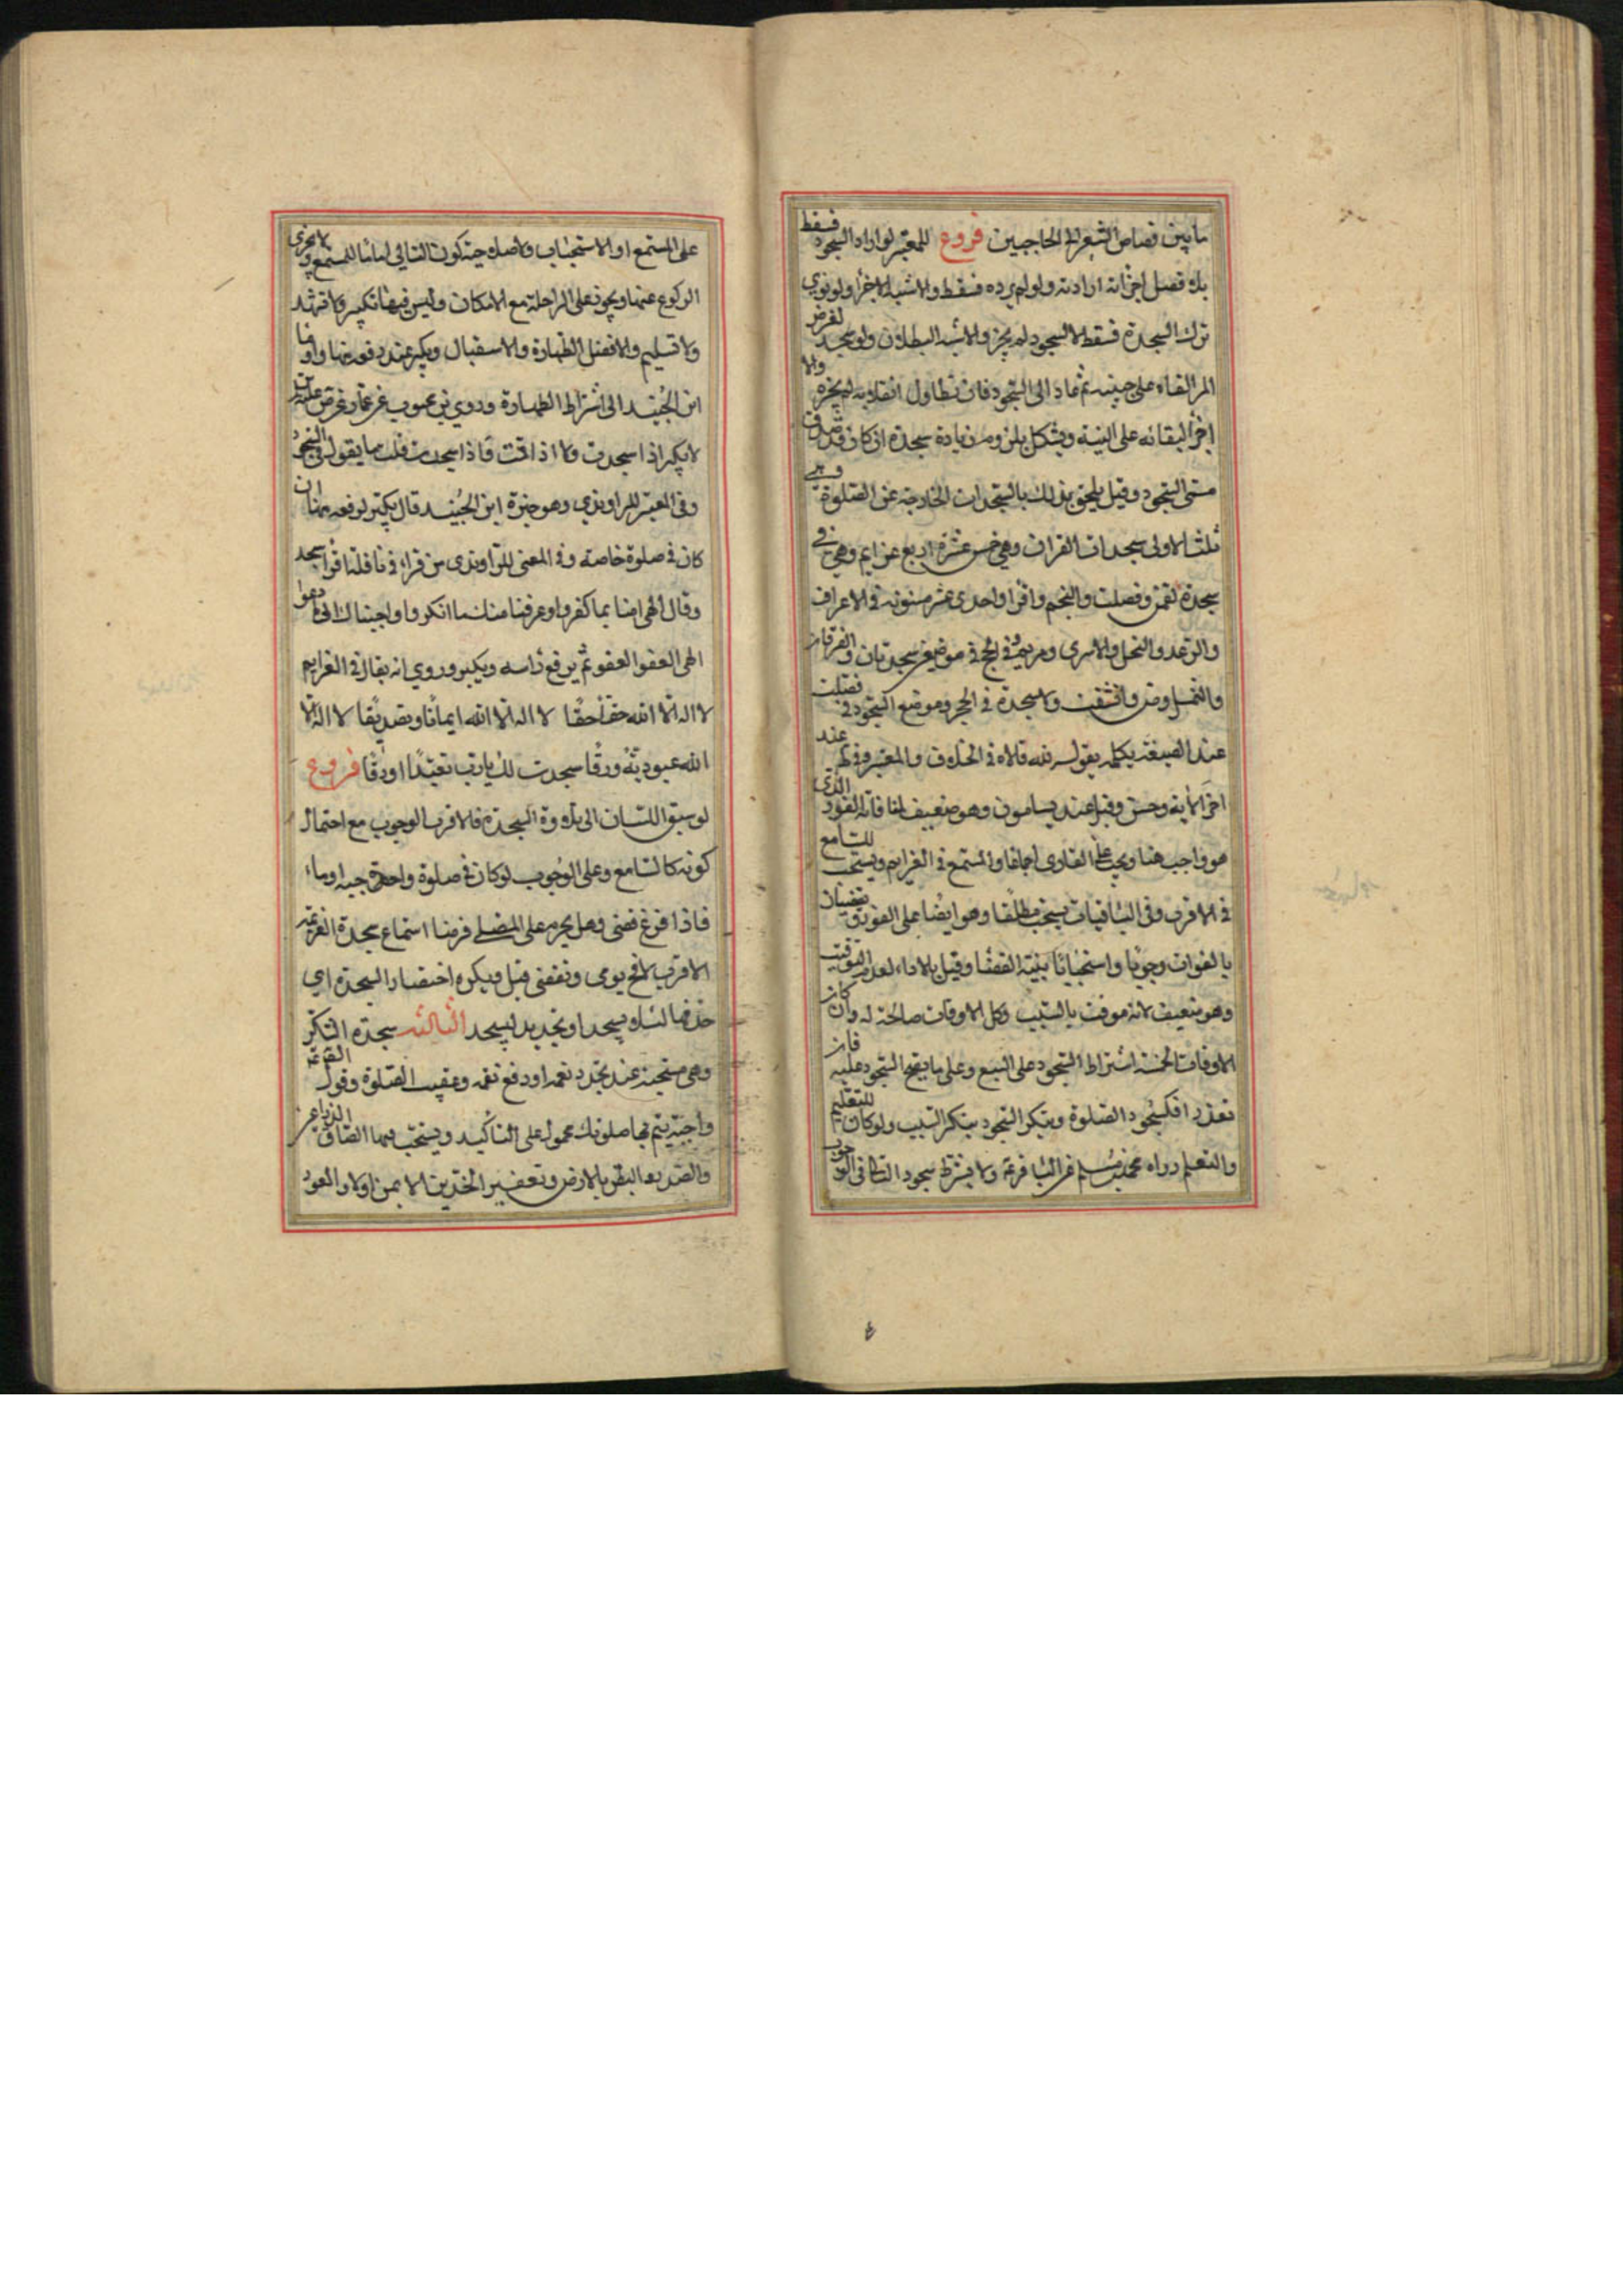 ما بين قصاص الشعر الى الحاجبين فروع للمعتبر لو اراد السجود فسقط
بلا قصد اجزأته ارادته ولو لم يرده فسقط والاشبه الاجزأ ولو نوى
ترك السجدة فسقط لا للسجود لم يجز والاشبه البطلان ولو سجد لغرض
القاه على جبينه ثم عاد الى السجود فان تطاول انقلابه لم يجزه والا
اجزأ لبقائه على النية ويشكل بلزوم زيادة سجدة ان كان قد صدق
مسمى السجود وقيل يلحق بذلك بالسجدات الخارجة عن الصلوة وهي
ثلث الاولى سجدات القران وهي خمس عشرة اربع عزايم وهي في
سجدة لقمن وفصلت والنجم واقرا واحدى عشر مسنونة في الاعراف
والرعد والنحل والاسرى ومريم وفي الحج في موضعين سجدتان والفرقان
والنمل وص وانشقت ولا سجدة في الحجر وموضع السجود في فصلت
عند الصيغة بكلمة يقول لله قالاه في الخلاف والمعتبر وفي عند
اخر الاية وحسن وقيل عند يسامون وهو ضعيف لمنافاته الفور الذي
هو واجب هنا ويجب على القارى اجماعا والمستمع في العزايم ويستحب للسامع
في الاقرب وفي الباقيات يستحب مطلقا وهو ايضا على الفور يقضيان
بالفوات وجوبا واستحبابا بنية القضا وقيل بالاداء لعدم التوقيت
وهو ضعيف لانه موقت بالسبب وكل الاوقات صالحة له وان كان
الاوقات الخمسة اشتراط السجود على السبع وعلى ما يصح السجود عليه فان
تعذر فكسجود الصلوة ويتكرر السجود بتكرر السبب ولو كان للتعليم
والتعلم رواه محمد بن مسلم عن الباقر ع ولا يشترط سجود التالي في الوجوب
على المستمع او الاستحباب ولا صلاحيته كون التالي اماما للمستمع ولا يجزى
الركوع عنها ويجوز على الراحلة مع الامكان وليس فيها تكبير ولا تشهد
ولا تسليم والافضل الطهارة والاستقبال ويكبر عند رفعه منها واوما
ابن الجنيد الى اشتراط الطهارة وروى بن محبوب عن عمار عن ص ع
لا يكبر اذا سجدت ولا اذا قمت فاذا سجدت قلت ما يقول في السجود
وفي المعتبر للراوندي وهو خيرة ابن الجنيد قال يكبر لرفعه منها ان
كان في صلوة خاصة وفي المغنى للراوندى من قرا في نافلة اقرا سجد
وقال الهى امنا بما كفروا وعرفنا منك ما انكروا واجبناك الى ما دعوا
الهى العفو العفو ثم يرفع راسه ويكبر وروي انه يقال في العزايم
لا اله الا الله حقا حقا لا اله الا الله ايمانا وتصديقا لا اله الا
الله عبودية ورقا سجدت لك يا رب تعبدا ورقا فروع
لو سبق اللسان الى تلاوة السجدة فالاقرب الوجوب مع احتمال
كونه كالسامع وعلى الوجوب لو كان في صلوة واجبة اوماء
فاذا فرغ قضى وهل يحرم على المصلي فرضا استماع سجدة العزيمة
الاقرب لا فح يومى وتقضى قيل ويكره اختصار السجدة اي
حذفها لئلا يسجد او تجديد ليسجد الثالثة سجدة الشكر
وهي مستحبة عند تجدد نعمة او دفع نقمة وعقيب الصلوة وقول
واجبة يتم بها صلوتك محمول على التاكيد ويستحب فيهما الصاق الذراعين
والصدر والبطن بالارض وتعفير الخدين الايمن اولا والعود